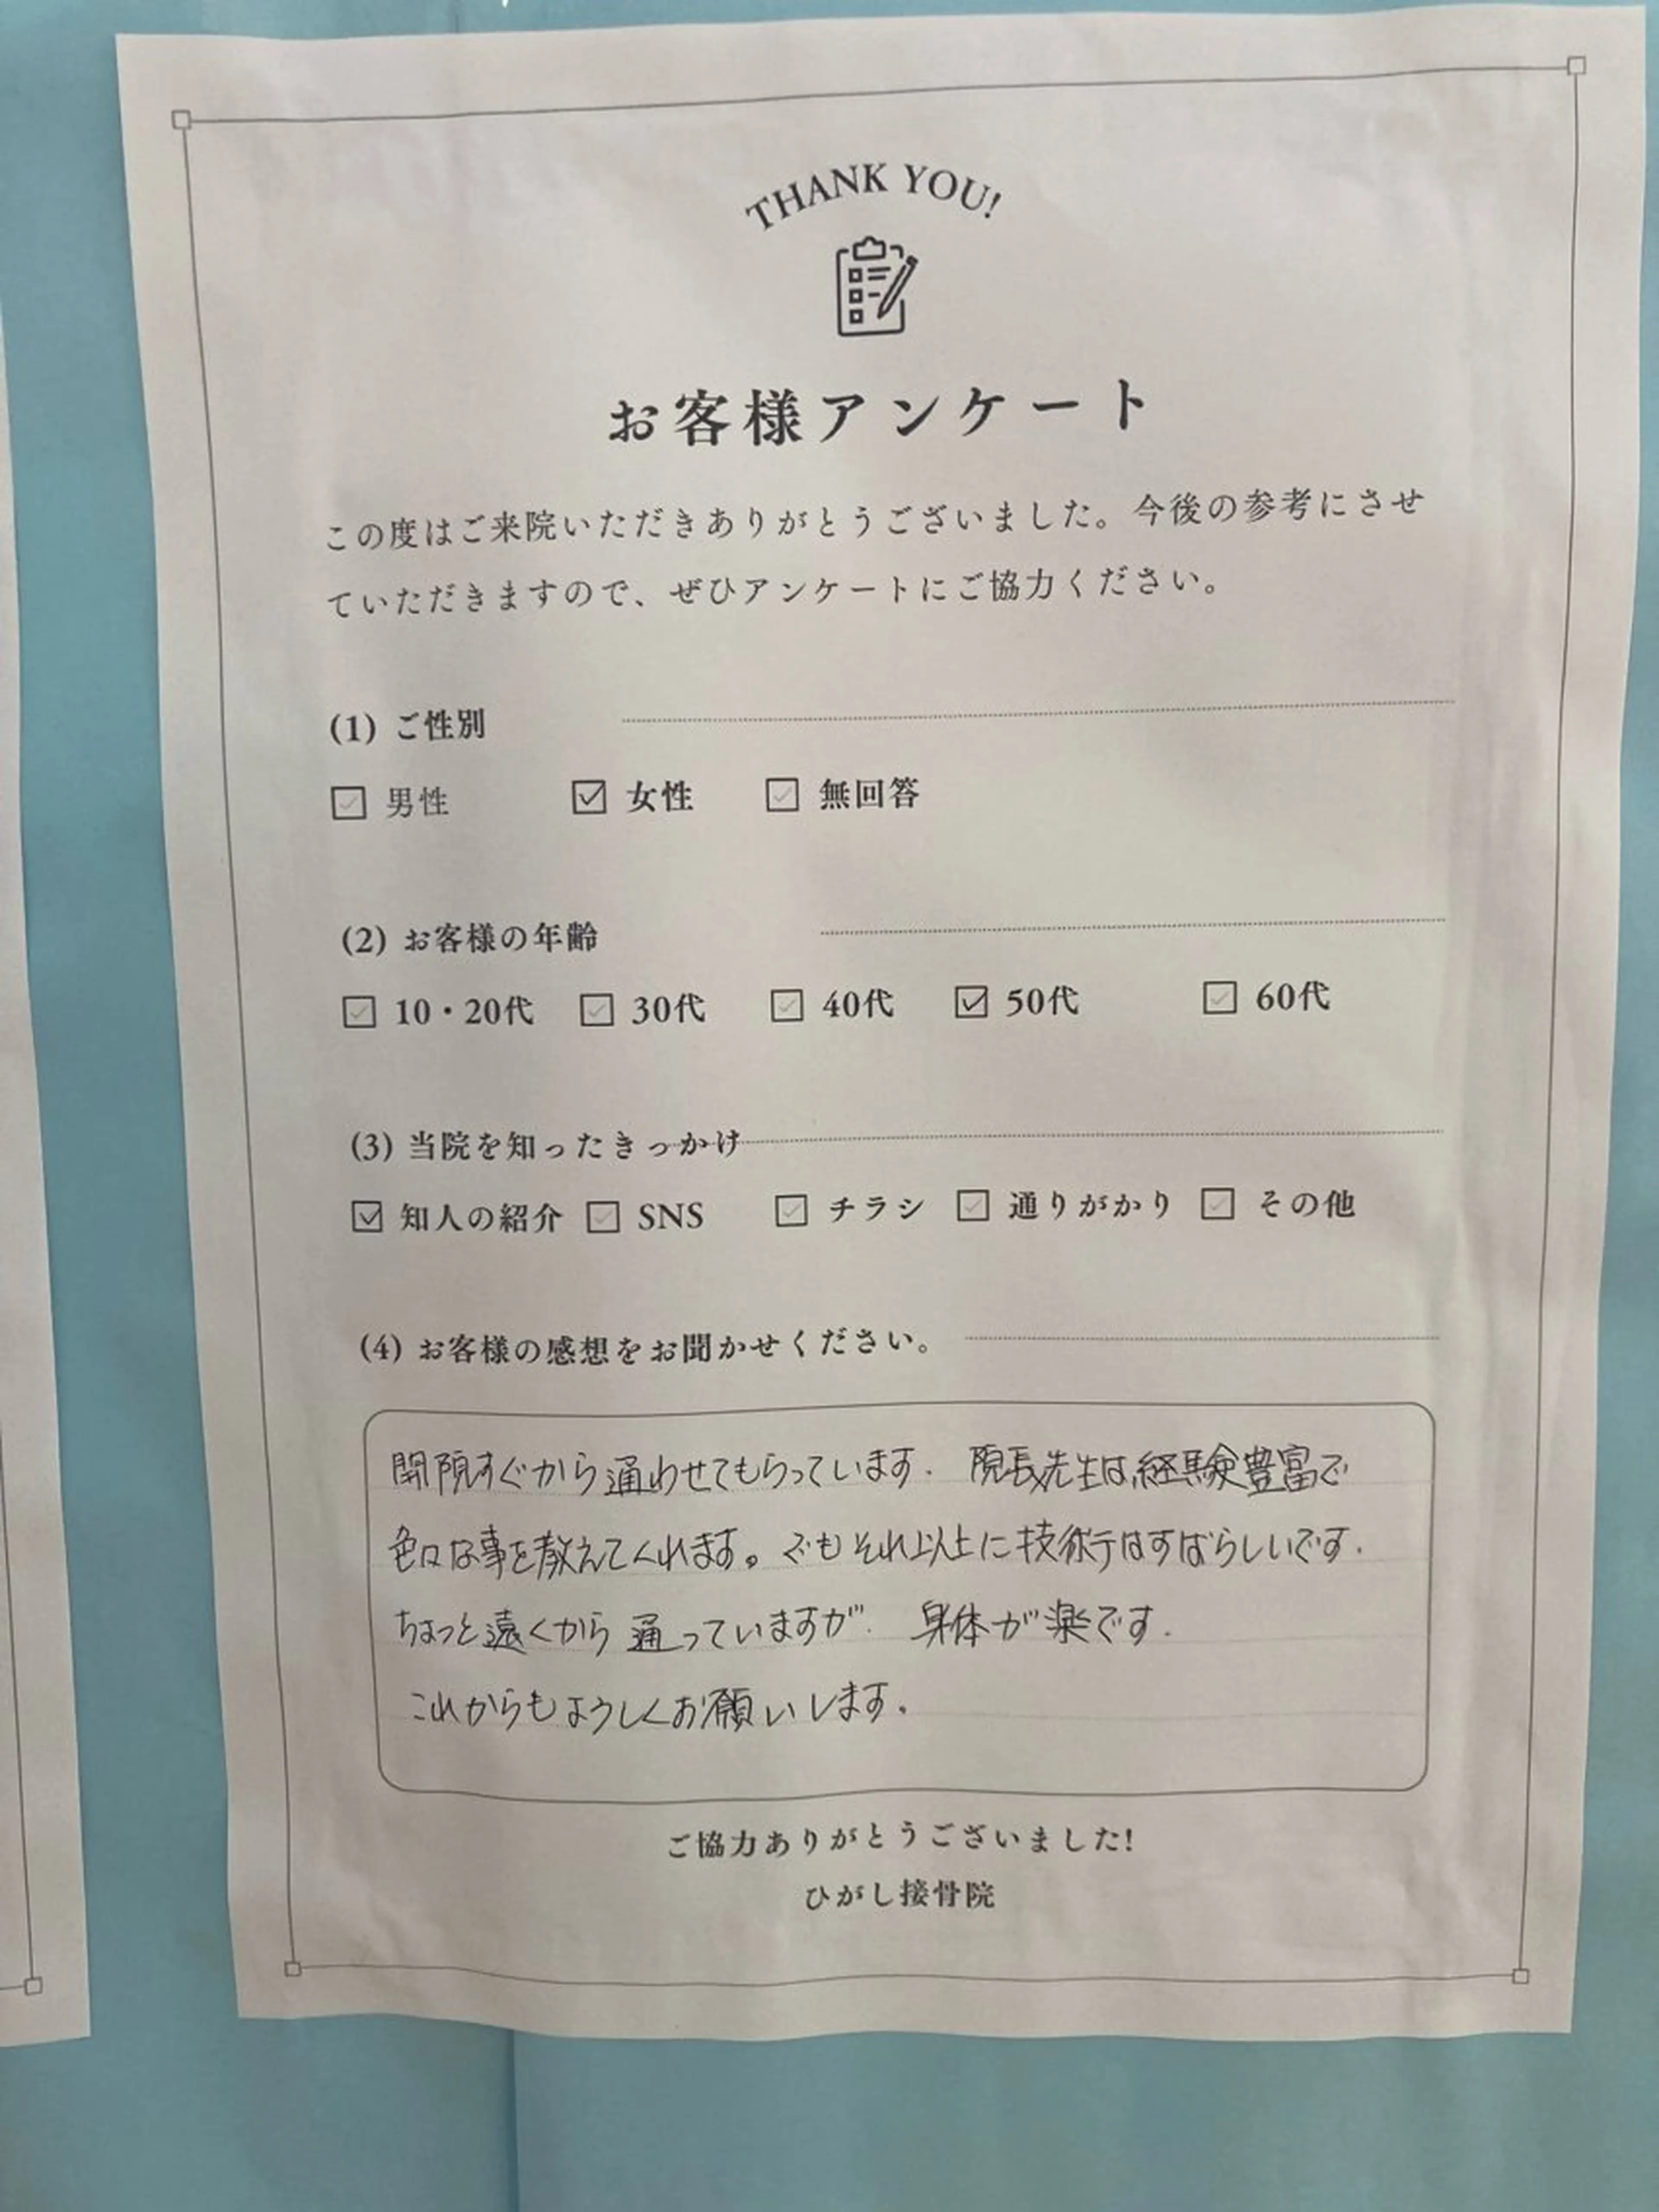 THANK YOU!
お客様アンケート
この度はご来院いただきありがとうございました。今後の参考にさせ
ていただきますので、ぜひアンケートにご協力ください。
(1) ご性別
男性 女性 無回答
(2) お客様の年齢
10・20代 30代 40代 50代 60代
(3) 当院を知ったきっかけ
知人の紹介 SNS チラシ 通りがかり その他
(4) お客様の感想をお聞かせください。
開院すぐから通わせてもらっています. 院長先生は経験豊富で
色々な事を教えてくれます。でもそれ以上に技術はすばらしいです.
ちょっと遠くから通っていますが. 身体が楽です.
これからもようしくお願いします.
ご協力ありがとうございました!
ひがし接骨院